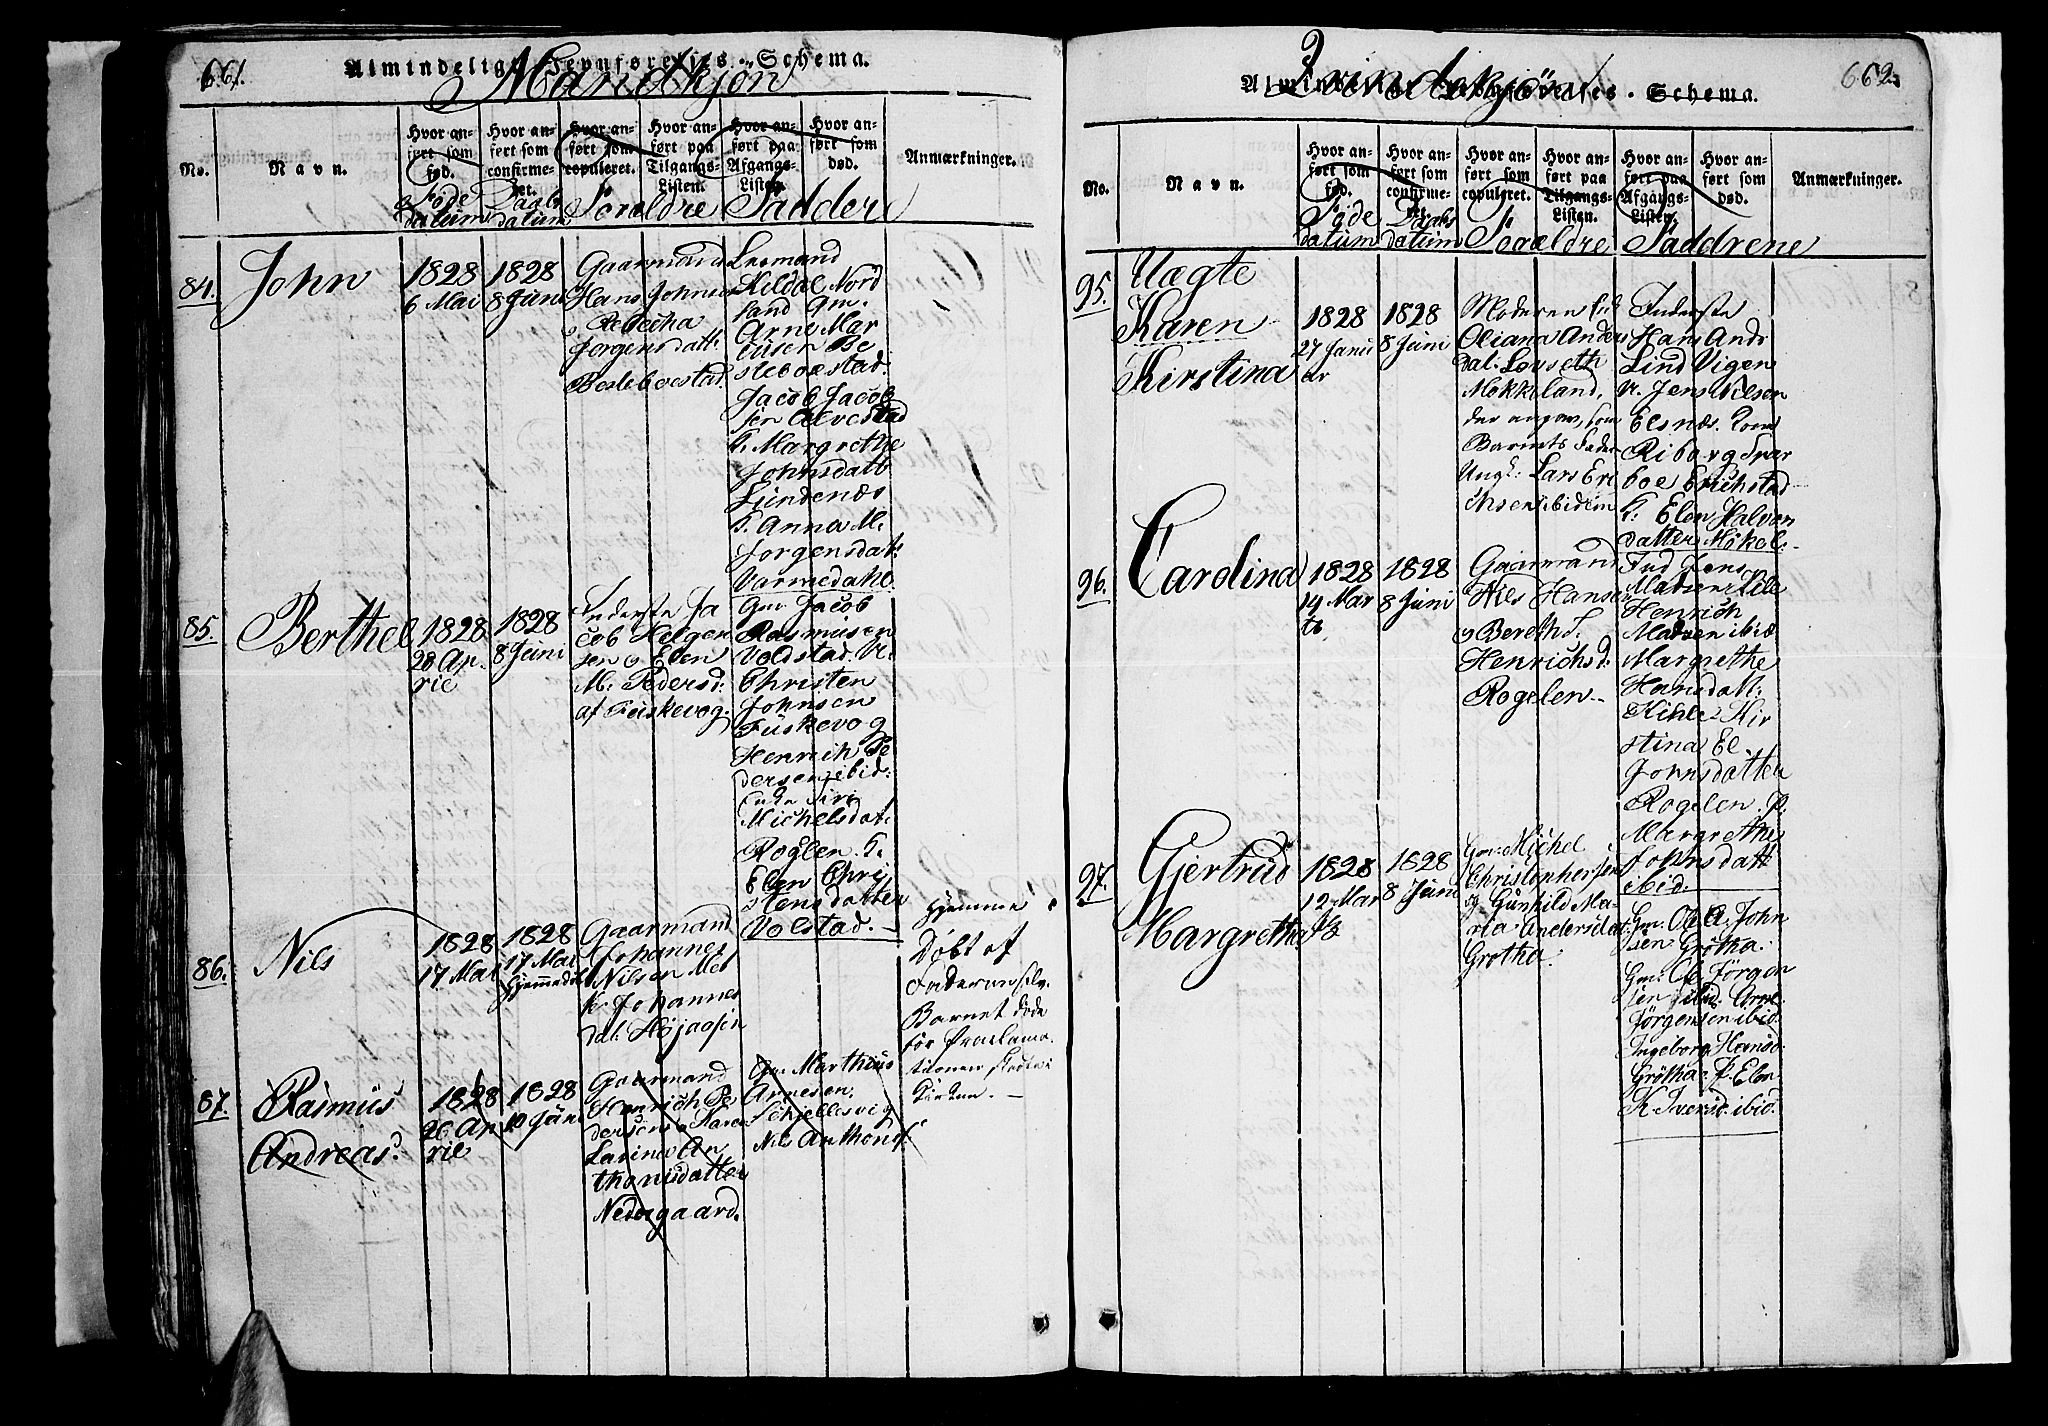 661.
Almindeligt Jevnførelses-Schema.
Mandkjön
No.
Navn.
Hvor anført som fød.
Hvor anført som confirmeret.
Hvor anført som copuleret.
Hvor anført paa Tilgangs-Listen.
Hvor anført paa Afgangs-Listen.
Hvor anført som død.
Anmærkninger.
Föde datum
Daabs datum
Foreldre
Fadderne
84.
John
1828
6 Mai
1828
8 Juni
Gaarmand
Hans Johnsen
Rebecha
Jorgensdatt:
Besleboestad.
Kildal Nord
land Gm.
Arne Mar
Be
sleboestad.
Jacob Jacob
sen Alvestad
K. Margrethe
Johnsdatt
Lundenæs
K. Anna M.
Jorgensdat:
Varmedahl.
85.
Berthel
1828
20 Ap.
ril
1828
8 Juni
Inderste Ja
cob Helgen
sen og Elen
M: Pedersd:
af Fuiskevog.
Gm Jacob
Rasmusen
Voldstad. U:
Christen
Johnsen
Fuskevog
Henrich Pe
dersen ibid:
Enke Siri
Michelsdat:
Roglen. K.
Elen Chri
stensdatter
Volstad.
86.
Nils
1828
17 Mai
1828
17 Mai
hjemmedöbt
Gaarmand
Johannes
Nilsen
Johannes
dat:
hjemme
Döbt af
Faderen selv.
Barnet döde
för Proclama
tionen skede i
Kirken.
87.
Rasmus
Andreas.
1828
26 Ap
ril
1828
10 Juni
Gaarmand
Henrich Pe
dersen og Karen
Larina An
thonisdatter
Nedergaard.
Gm: Marthius
Arnesen,
Schjellesvig
Nils Anthons:
662.
Almindeligt Jevnførelses-Schema.
Qvindekjön
No.
Navn.
Hvor anført som fød.
Hvor anført som confirmeret.
Hvor anført som copuleret.
Hvor anført paa Tilgangs-Listen.
Hvor anført paa Afgangs-Listen.
Hvor anført som død.
Anmærkninger.
Föde datum
Daabs datum
Foreldre
Faddrene
95.
Uægte
Karen
Kirstina
1828
27 Janu
ar
1828
8 Juni
Moderen
Oliana Anders
dat: Lovseth
Mökkeland,
der angav, som
Barnets Fader
Ungk: Lars Eri
chsen ibidem
Inderste
Hans Andr
Lind Vigen
U. Jens Nilsen
Elsnæs. Kone
Riborg Spar
boe Erichstad
K: Elen Halvor
datter Mökel:
96.
Carolina
1828
14 Mar
ts
1828
8 Juni
Gaarmand
Nils Hansen
og Berethe
Henrichsd:
Rogelen
Ind Jens
Madsen Kile
Henrich
Madsen ibid
Margrethe
Hansdatt:
Kihle Kir
stina El
Johnsdatter
Rogelen. P:
Margrethe
Johnsdatt
ibid:
97.
Gjertrud
Margretha
1828
12 Mar
ts
1828
8 Juni
Gm: Michel
Christophersen
og Gunhild Ma
ria Andersdat:
Grotha.
Gm. Ole A. John
sen Grötha.
Gm: Ole Jörgen
sen ibid. Arne
Jörgensen ibid.
Ingeborg Hansd:
Grötha. P. Elen
K Iversd. ibid.